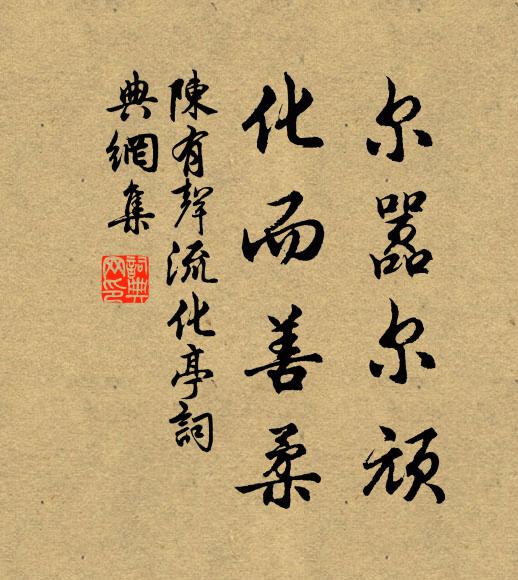 尔嚣尔顽
化而善柔
陳有聲流化亭詞
典網集
詞典
网印